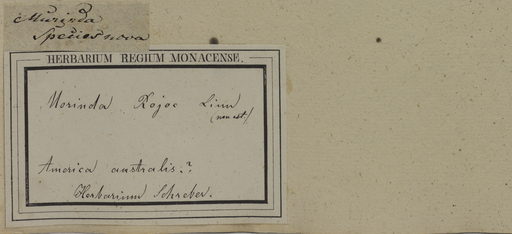 Murinda
Species nova
HERBARIUM REGIUM MONACENSE.
Morinda Rojoc Linn
(non est)
America australis.?
Herbarium Schreber.